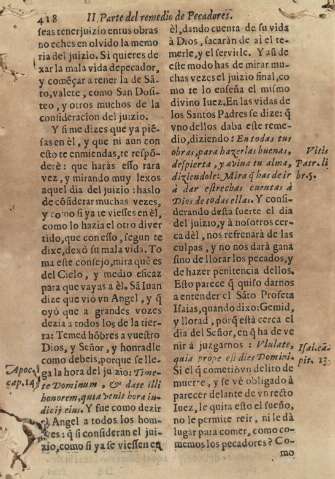 418 II Parte del remedio de Pecadores.
seas tener juizio en tus obras
no eches en olvido la memo
ria del juizio. Si quieres de
xar la mala vida de pecador,
y começar a tener la de Sã-
to, valete, como San Dosi-
teo, y otros muchos de la
consideracion del juizio.
Y si me dizes que ya piē-
sas en èl, y que ni aun con
esto te enmiendas, te respō-
derè: que haras esso rara
vez, y mirando muy lexos
aquel dia del juizio: hazlo
de cõsiderar muchas vezes,
y como si ya te viesses en èl,
como lo hazia el otro diver
tido, que con esso, segun te
dixe, dexò su mala vida. To
ma este consejo, mira què es
del Cielo, y medio eficaz
para que vayas a èl. Sã Iuan
dize que viò vn Angel, y q̃
oyò que a grandes vozes
dezia a todos los de la tier-
ra: Temed hõbres a vuestro
Dios, y Señor, y honradle
como debeis, porque se lle-
ga la hora del juizio: Time-
te Dominum, & date illi
honorem, quia venit hora iu-
dicij eius. Y fue como dezir
el Angel a todos los hom-
bres: q̃ si consideran el jui-
zio, como si ya se viessen en
Apoc.
cap. 14.
èl, dando cuenta de su vida
à Dios, sacaràn de ai el te-
merle, y el servirle. Y assi de
este modo has de mirar mu-
chas vezes el juizio final, co
mo te lo enseña el mismo
divino Iuez. En las vidas de
los Santos Padres se dize: q̃
vno dellos daba este reme-
dio, diziendo: En todas tus
obras, para hazerlas buenas,
despierta, y aviva tu alma,
diziendole: Mira q̃ has de ir
à dar estrechas cuentas à
Dios de todas ellas. Y consi-
derando desta suerte el dia
del juizio, y à nosotros cer-
ca dèl, nos refrenarà de las
culpas, y no nos darà gana
sino de llorar los pecados, y
de hazer penitencia dellos.
Esto parece q̃ quiso darnos
a entender el Sãto Profeta
Isaias, quando dixo: Gemid,
y llorad, porq̃ està cerca el
dia del Señor, en q̃ ha de ve
nir à juzgarnos: Vlulate,
quia prope est dies Domini.
Si el q̃ cometiò vn delito de
muerte, y se vè obligado à
parecer delante de vn recto
Iuez, le quita esto el sueño,
no le permite reir, ni le dà
lugar para comer, como co-
memos los pecadores? Co
mo
Vitis
Patr. li
br. 5.
Isai. ca
pit. 13.